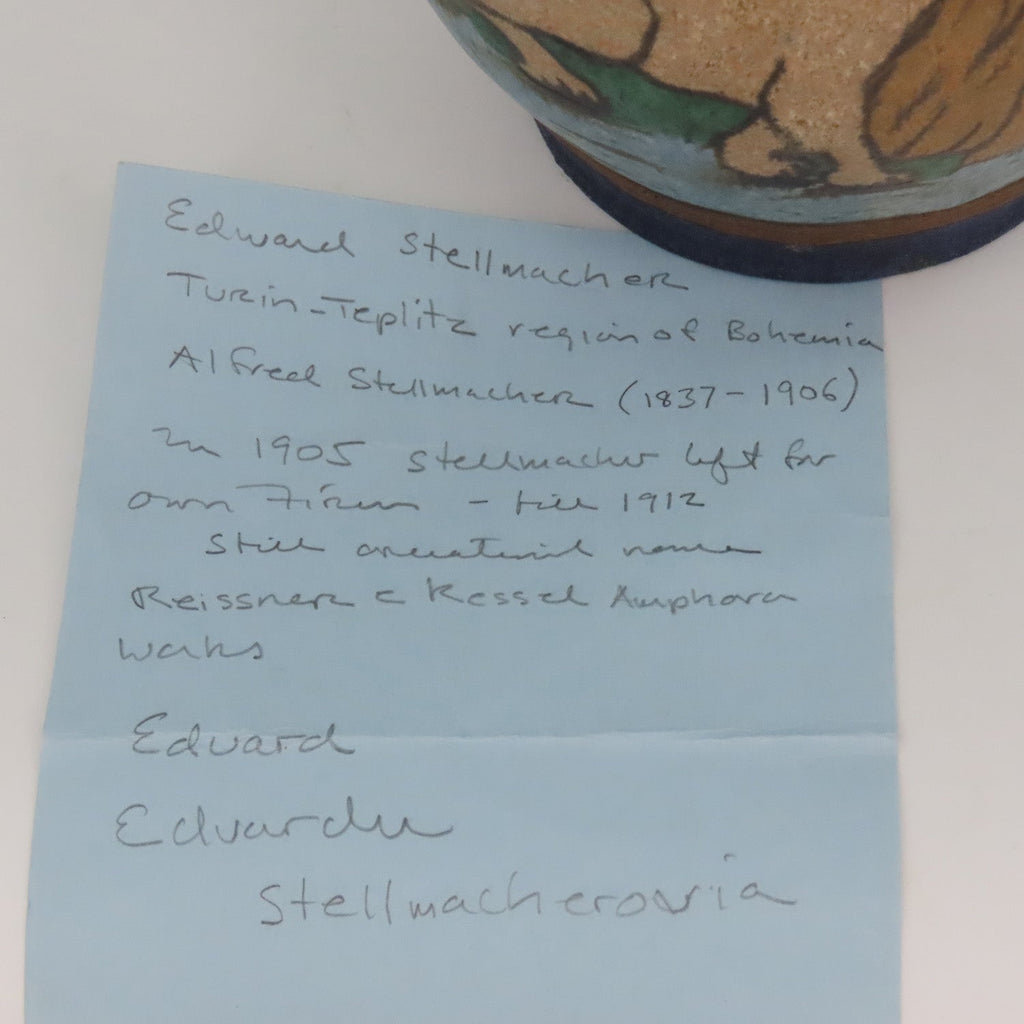 Edward Stellmacher
Turin-Teplitz region of Bohemia
Alfred Stellmacher (1837-1906)
In 1905 Stellmacher left for
own Firm - till 1912
Still name
Reissner & Kessel Amphora
Works
Eduard
Eduardu
Stellmacherovia